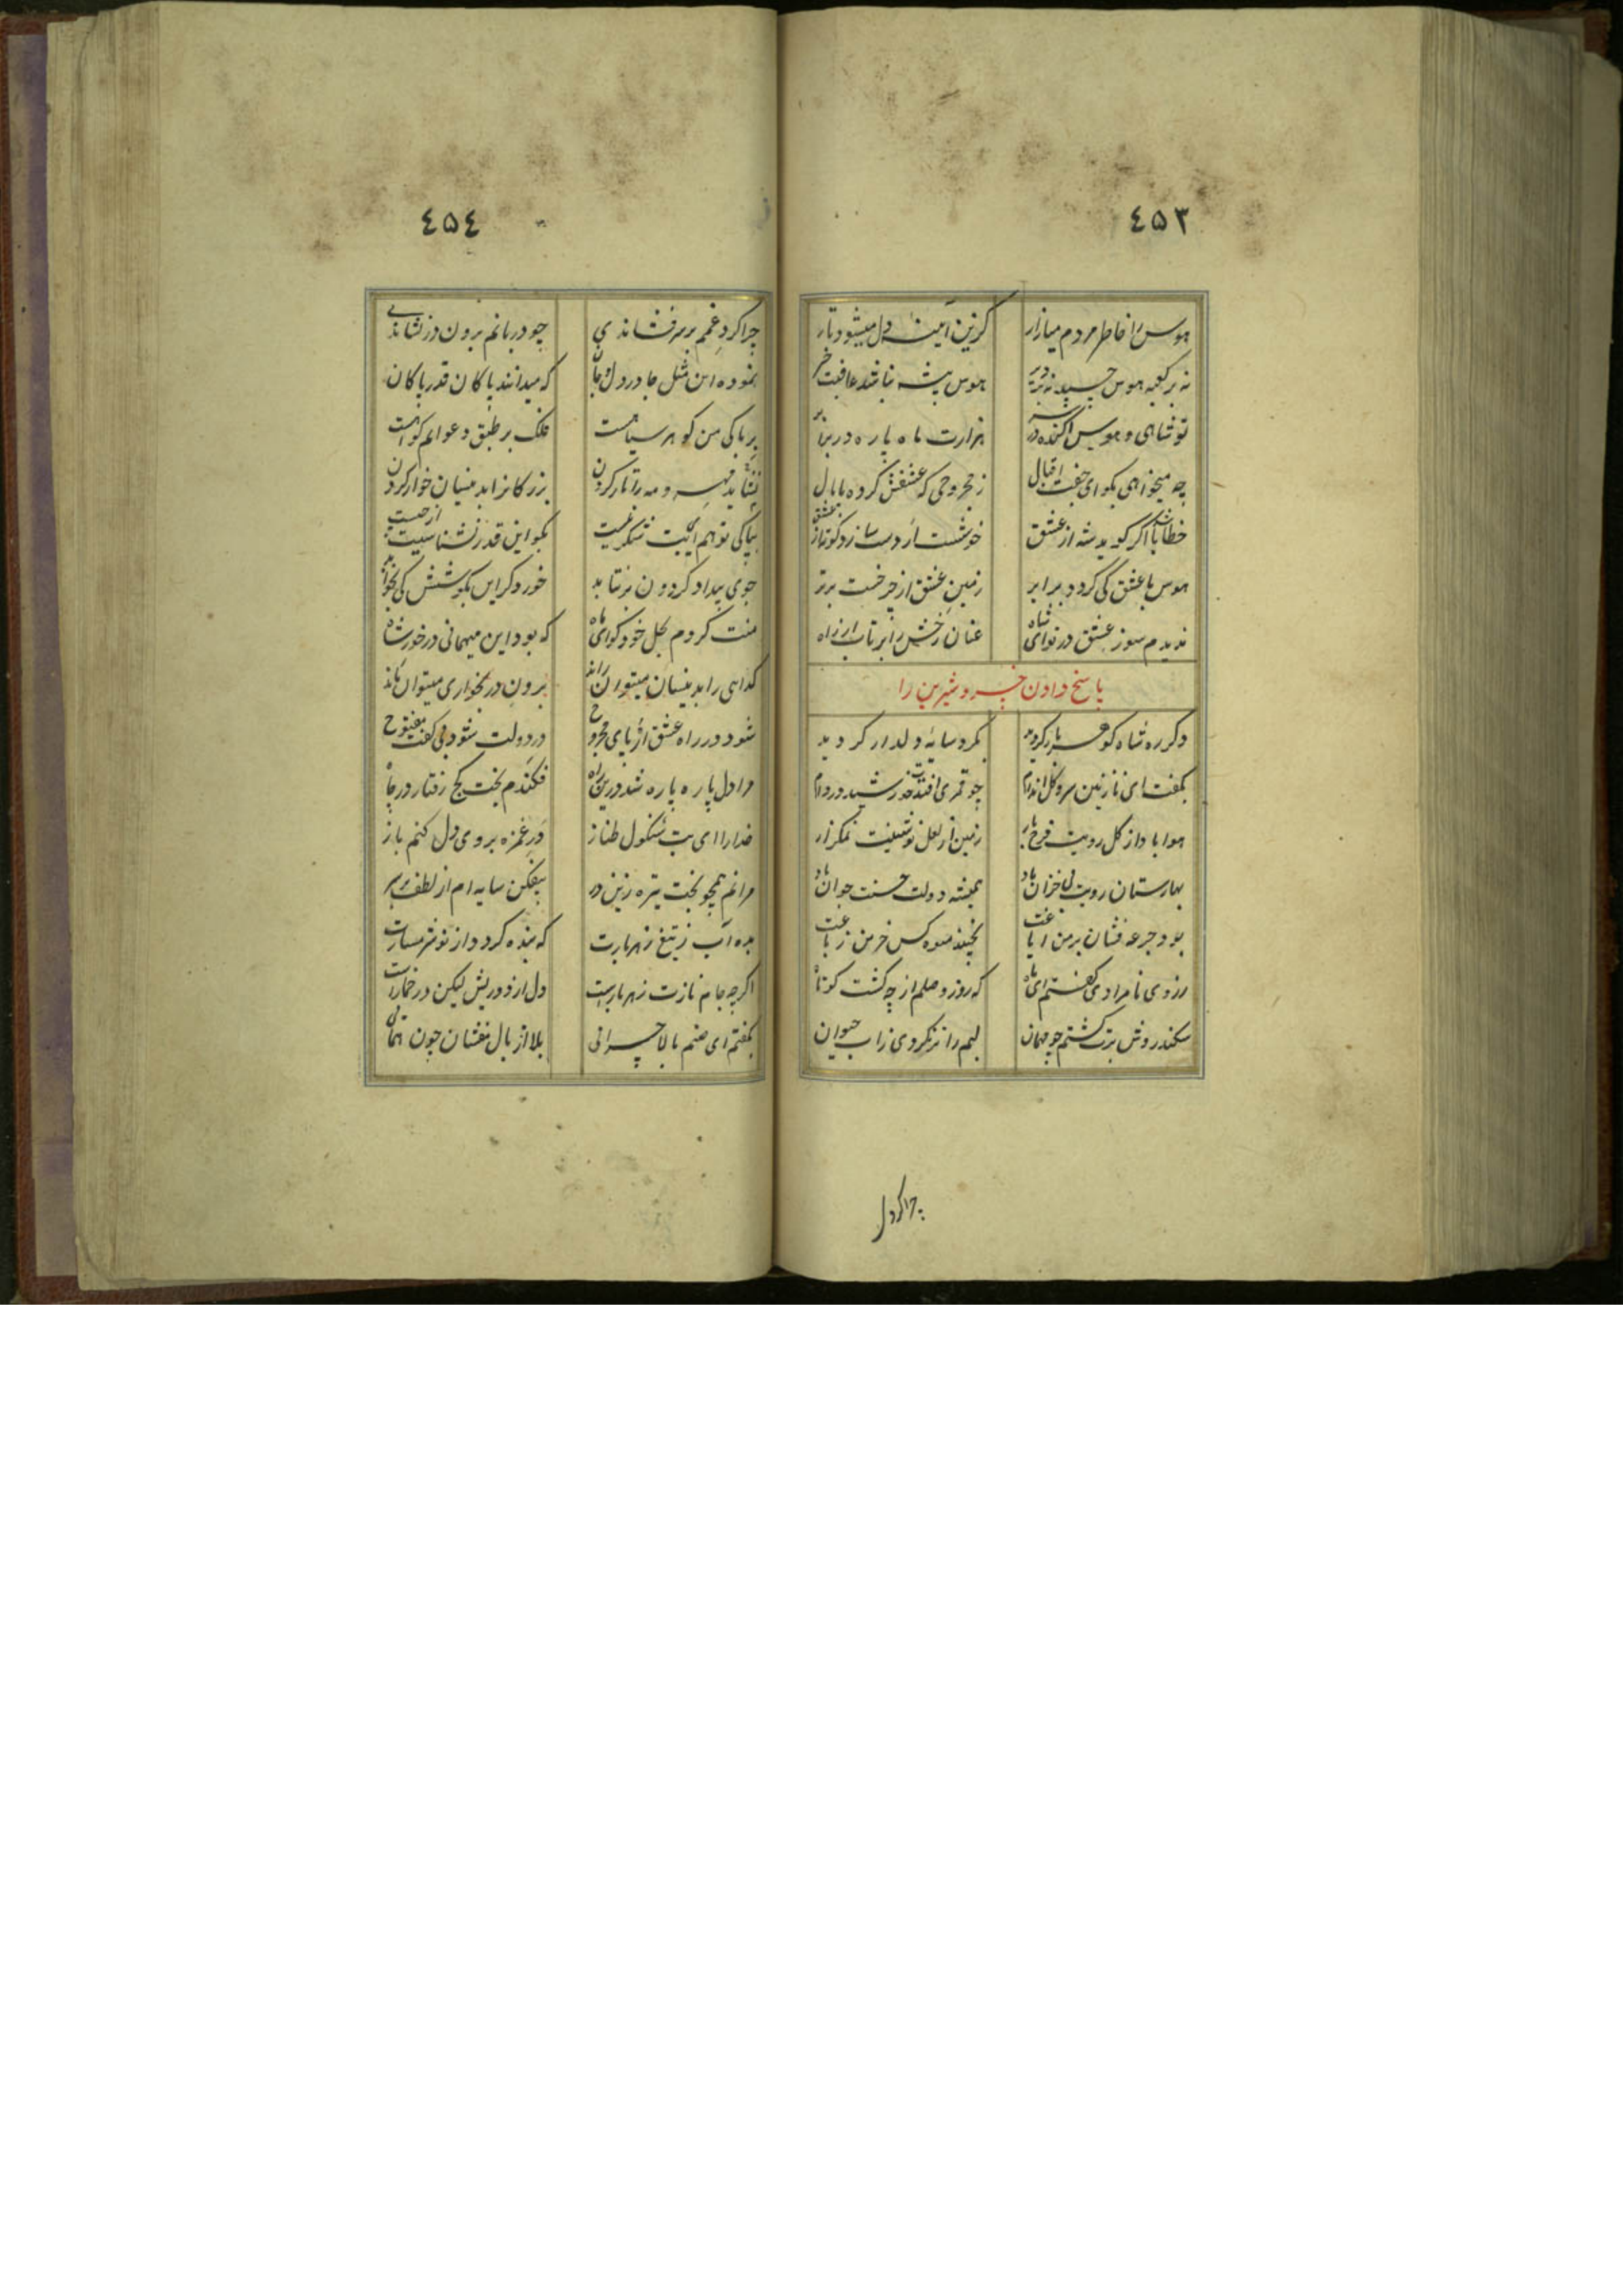 ٤٥٣
هوس را خاطر مردم میازار کزین آیینه دل میشود تار
نه بر کعبه هوس نه دیر هوس پیشه نباشد عاقبت خیر
تو شاهی و هوس افکنده در سر هزارت ماه پاره در برابر
چه میخواهی بگو ای جفت اقبال ز مجروحی که عشقش کرده پامال
خطا باشد اگر گوید شه از عشق خوشست ار دست سازد کوته از عشق
هوس با عشق کی گردد برابر زمین عشق از چرخست برتر
ندیدم سوز عشق در نوای شاه عنان رخش را برتاب ازین راه
پاسخ دادن خسرو شیرین را
دگر ره شاه گوهربار گردید بگرد سایهٔ دلدار گردید
بگفت ای نازنین سرو گل اندام چو قمری افتدت خورشید در دام
هوا باد از گل رویت فرح بار زمین از لعل نوشینت نمکزار
بهارستان رویت بی خزان باد همیشه دولت حسنت جوان باد
بود جرعه فشان بر من ایاغت نچیند میوه کس جز من ز باغت
ز روی نامرادی گفتم ای ماه که روز وصلم از چه گشت کوتاه
سکندروش برت گشتم چو مهمان لبم را تر نکردی زاب حیوان
چرا گرد
٤٥٤
چرا گرد غمم بر سر فشاندی چو دربانم برون در نشاندی
نموده این مثل جا در دل و جان که میدانند پاکان قدر پاکان
بپاکی من گوهر سیاهست فلک بر طبق دعوایم گواهست
نشاید مهر و مه را تار کردن بزرگانرا بدینسان خوار کردن
بپاکی تو هم اینت شکی نیست بگو این قدر نشناسیت از چیست
جوی بیداد گردون برنتابد خورد گر این بکوشش کی بخوابد
منت کردم بحل خود گو ای ماه که بود این میهمانی در خور شاه
گدایی را بدینسان میتوان راند برون در بخواری میتوان ماند
شود در راه عشق از پای مجروح در دولت شود بی گفت مفتوح
مرا دل پاره پاره شد درین راه فکندم بخت کج رفتار در چاه
خدارا ای بت شنگول طناز در غمزه بروی دل کنم باز
مرانم همچو بخت تیره زین در بیفکن سایه ام از لطف بر سر
بده آب ز تیغ زهربارت که بنده گردد از تو شرمسارت
اگرچه جام نازت زهربارست دل ازو در یش لیکن در خمارست
بگفتم ای صنم بالا چرانی بلا از بال مفشان چون همائی